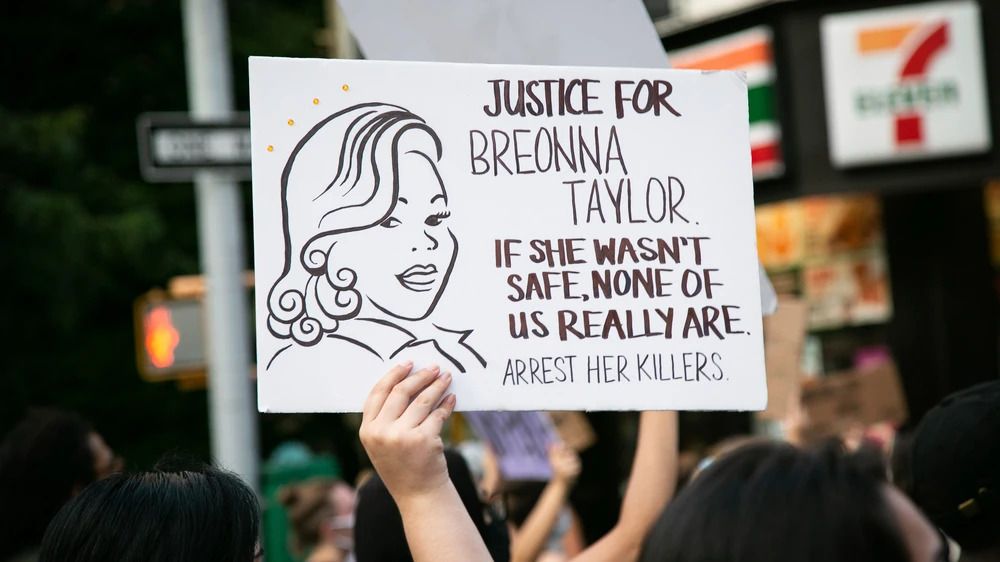 JUSTICE FOR
BREONNA
TAYLOR.
IF SHE WASN'T
SAFE, NONE OF
US REALLY ARE.
ARREST HER KILLERS.
7
ELEVEN